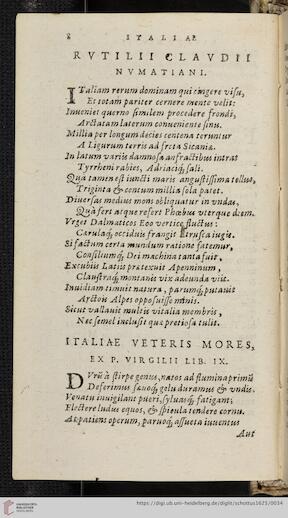 8 ITALIAE
RVTILII CLAVDII
NVMATIANI.
ITaliam rerum dominam qui cingere visu,
Et totam pariter cernere mente velit:
Inueniet querno similem procedere frondi,
Arctatam laterum conueniente sinu.
Millia per longum decies centena teruntur
A Ligurum terris ad freta Sicaniæ.
In latum variis damnosa anfractibus intrat
Tyrrheni rabies, Adriaciq; sali.
Quà tamen est iuncti maris angustissima tellus,
Triginta & centum millia sola patet.
Diuersas medius mons obliquatur in vndas,
Quà fert atque refert Phœbus vterque diem.
Vrget Dalmaticos Eoo vertice fluctus:
Cærulaq; occiduis frangit Etrusca iugis.
Si factum certa mundum ratione fatemur,
Consiliumq; Dei machina tanta fuit,
Excubiis Latiis prætexuit Apenninum,
Claustraq; montanis vix adeunda viis.
Inuidiam timuit natura, parumq; putauit
Arctois Alpes opposuisse minis.
Sicut vallauit multis vitalia membris,
Nec semel inclusit quæ pretiosa tulit.
ITALIAE VETERIS MORES,
EX P. VIRGILII LIB. IX.
DVrū à stirpe genus, natos ad flumina primū
Deferimus sæuoq; gelu duramus & vndis.
Venatu inuigilant pueri, syluasq; fatigant;
Flectere ludus equos, & spicula tendere cornu.
At patiens operum, paruoq; assueta iuuentus
Aut
https://digi.ub.uni-heidelberg.de/diglit/schottus1625/0034